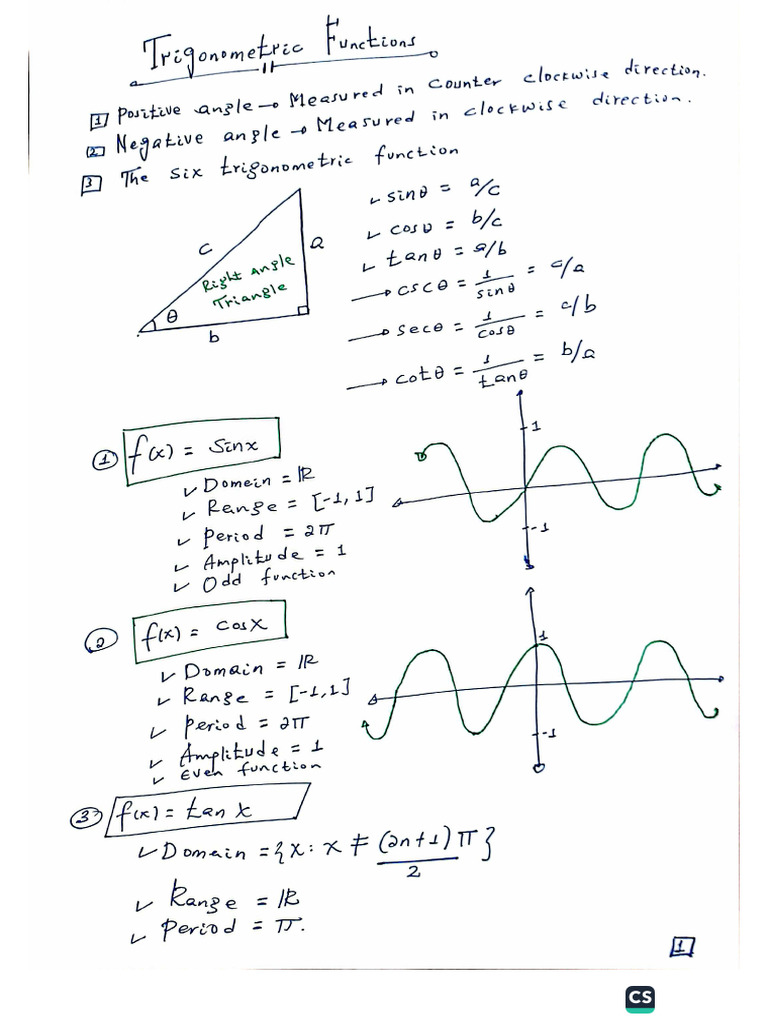 Trigonometric Functions
1 Positive angle → Measured in counter clockwise direction.
2 Negative angle → Measured in clockwise direction.
3 The six trigonometric function
✓ sinθ = a/c
✓ cosθ = b/c
✓ tanθ = a/b
→ cscθ = 1/sinθ = c/a
→ secθ = 1/cosθ = c/b
→ cotθ = 1/tanθ = b/a
c
a
Right angle
Triangle
θ
b
① f(x) = Sinx
✓ Domein = ℝ
✓ Range = [-1, 1]
✓ Period = 2π
✓ Amplitude = 1
✓ Odd function
1
-1
② f(x) = cosx
✓ Domain = ℝ
✓ Range = [-1,1]
✓ Period = 2π
✓ Amplitude = 1
✓ Even function
1
-1
③ f(x) = tan x
✓ Domain = {x: x ≠ (2n+1)π/2}
✓ Range = ℝ
✓ Period = π.
1
CS